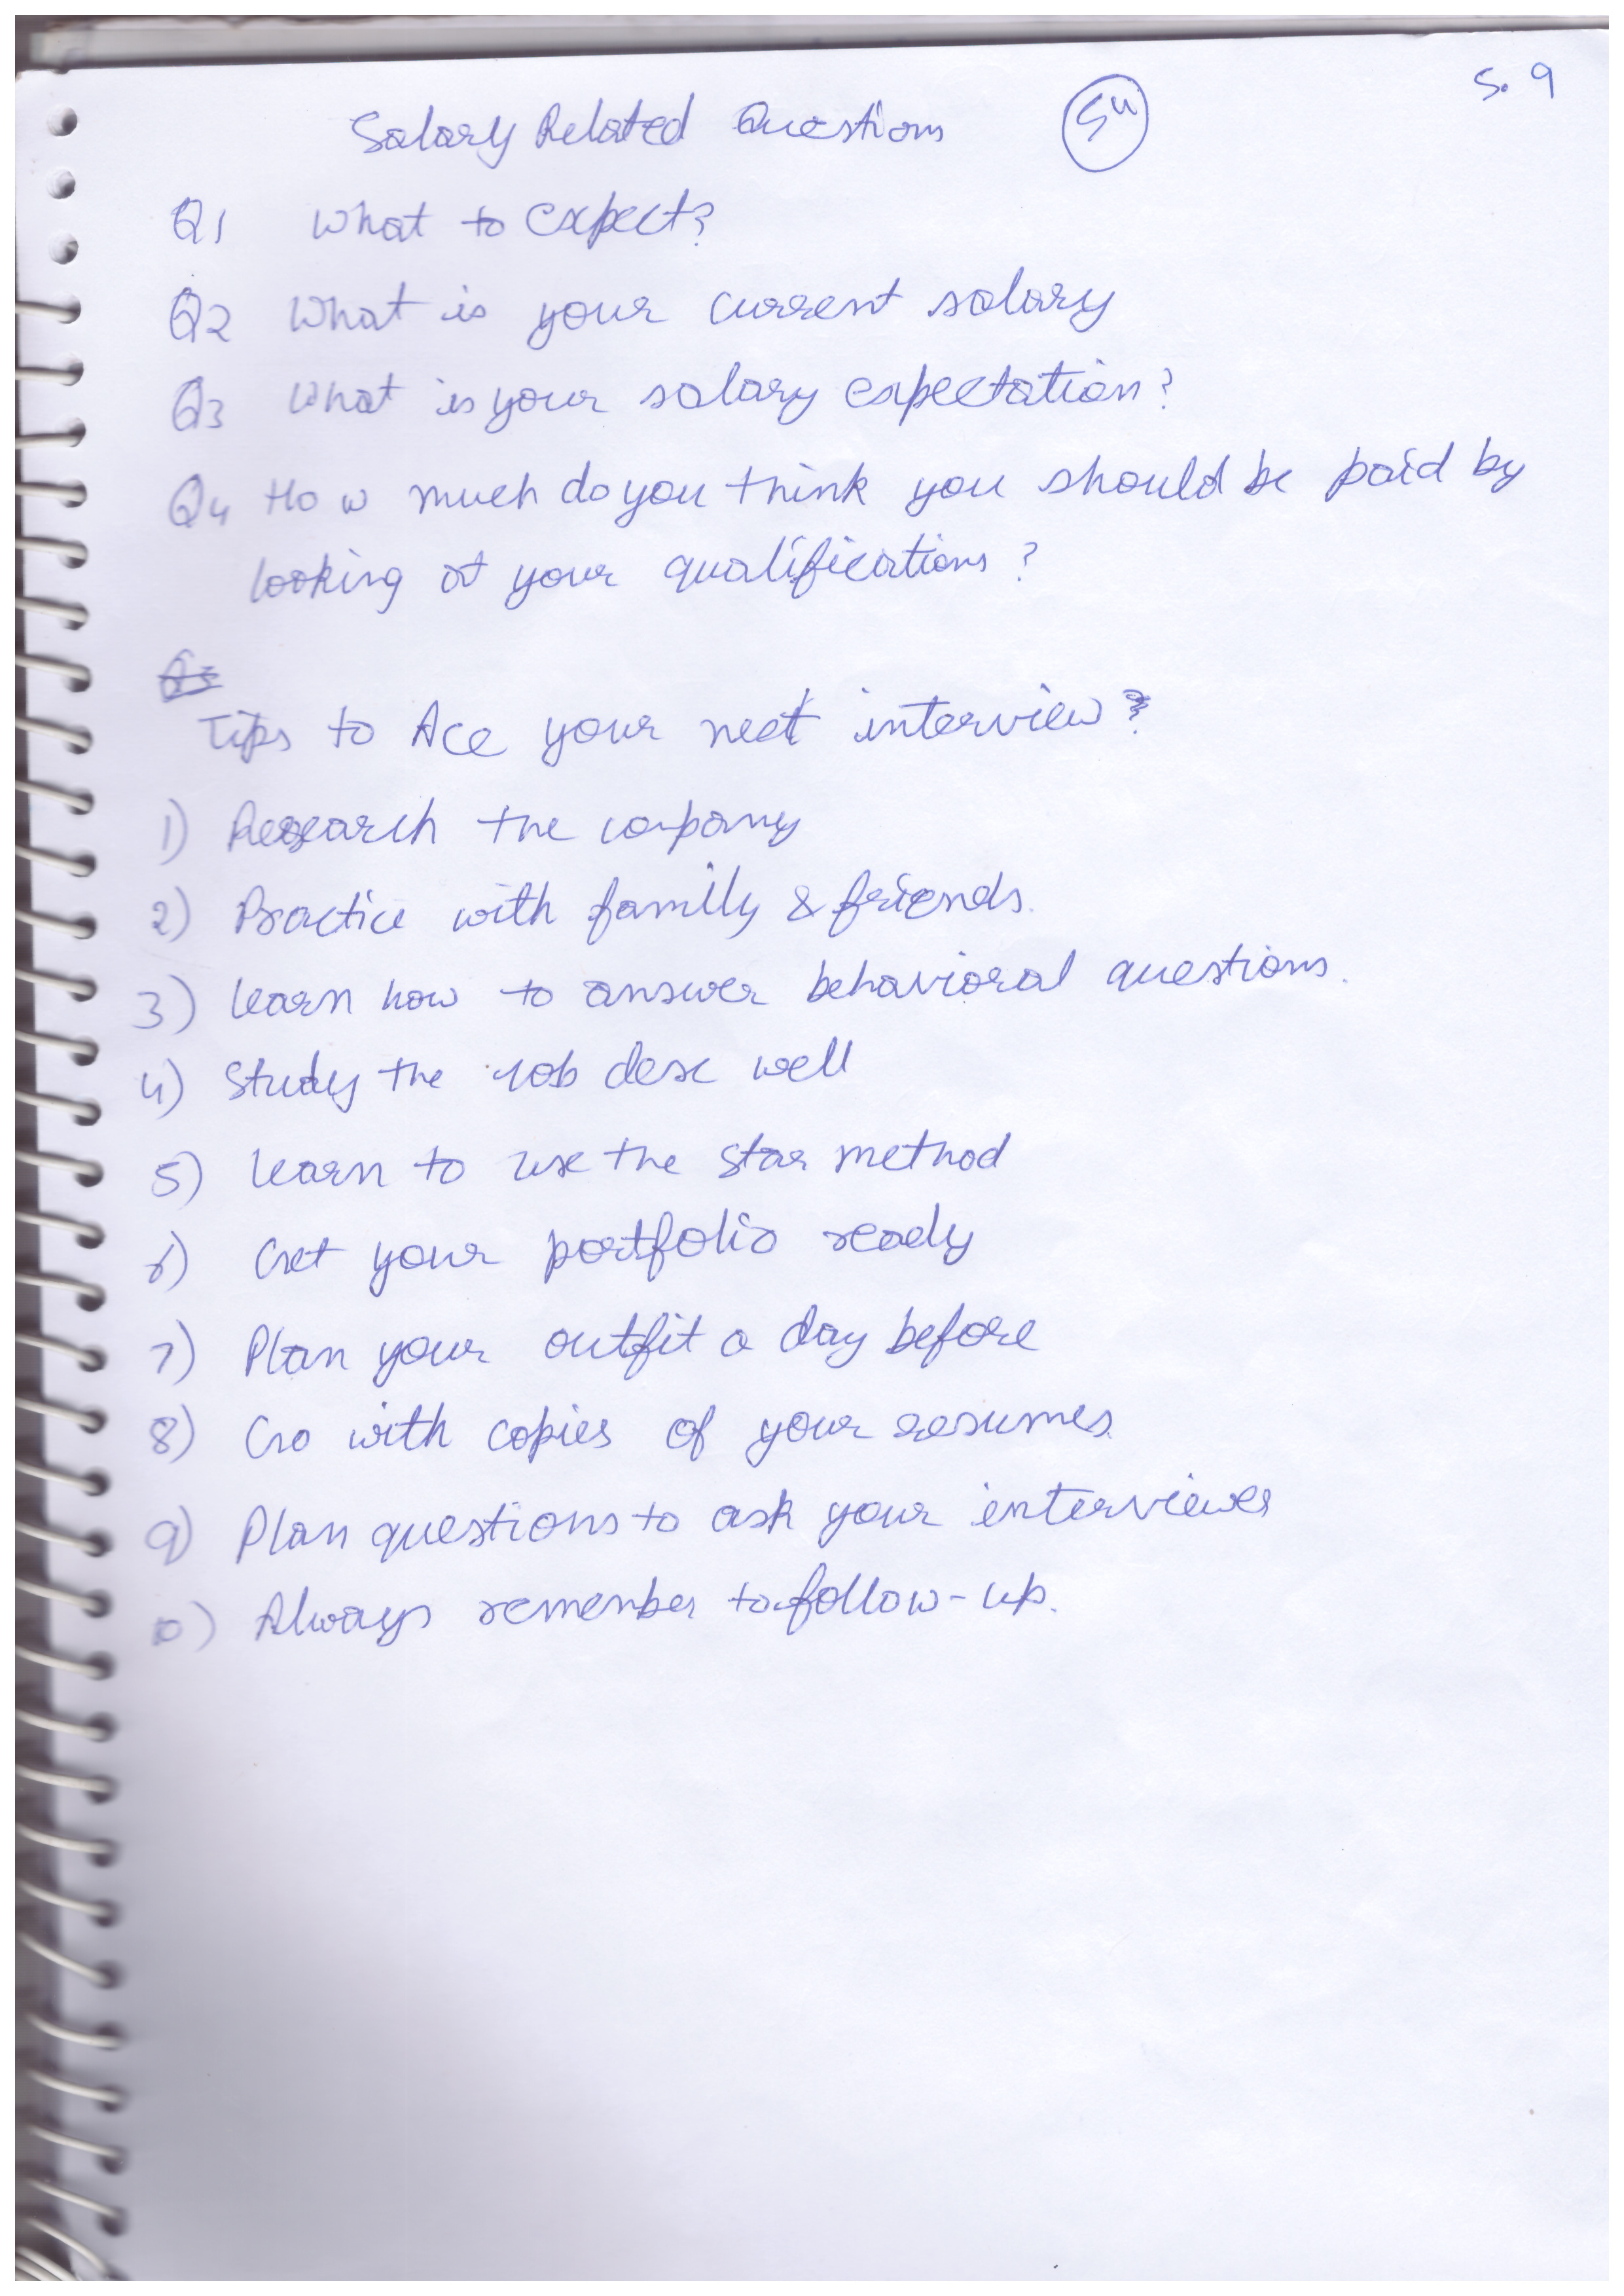 S. 9
Salary Related Questions
54
Q1 What to expect?
Q2 What is your current salary
Q3 What is your salary expectation?
Q4 How much do you think you should be paid by
looking at your qualifications?
Tips to Ace your next interview
1) Research the company
2) Practice with family & friends.
3) learn how to answer behavioral questions.
4) Study the job desc well
5) learn to use the star method
6) Get your portfolio ready
7) Plan your outfit a day before
8) Go with copies of your resumes.
9) Plan questions to ask your interviewer
10) Always remember to follow-up.